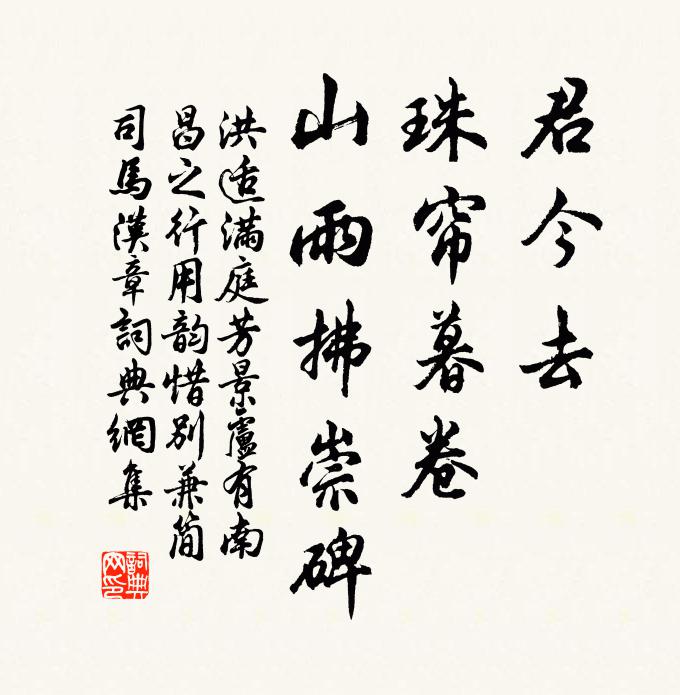 君今去
珠帘暮卷
山雨拂崇碑
洪适满庭芳景盧有南
昌之行用韵惜别兼简
司馬漢章詞典網集
詞典
网印